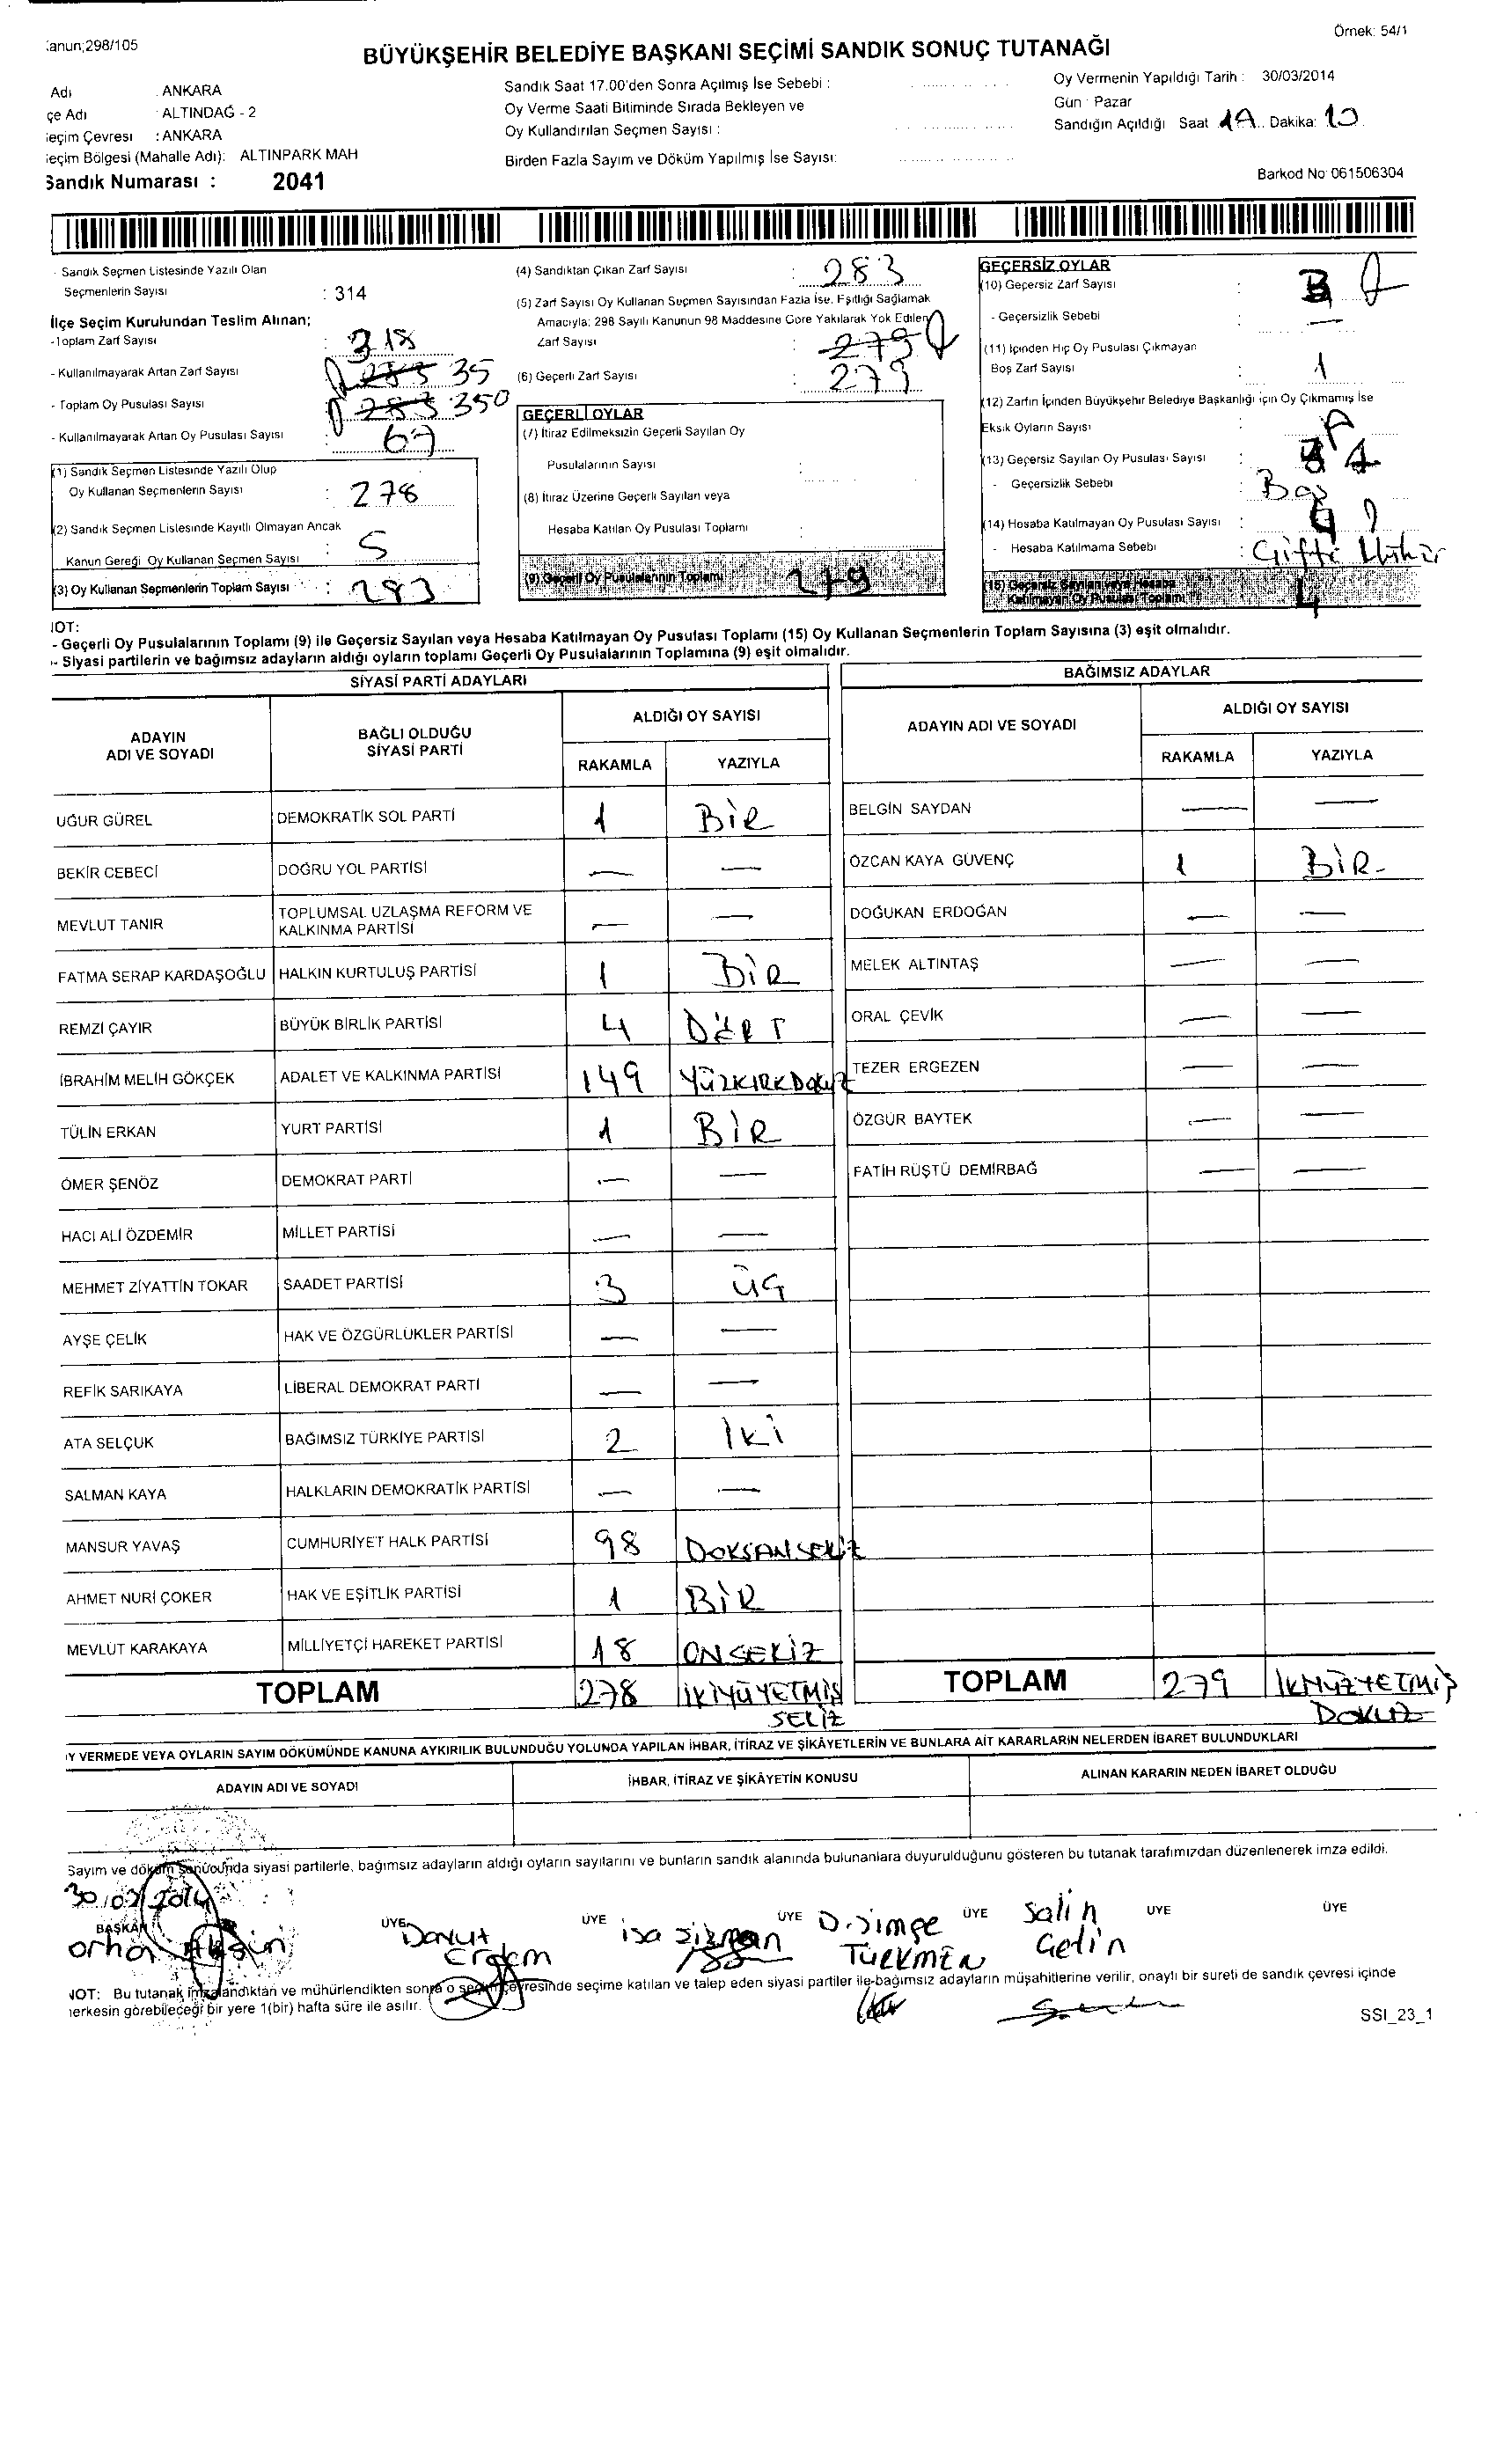 Örnek: 54/1
BÜYÜKŞEHİR BELEDİYE BAŞKANI SEÇİMİ SANDIK SONUÇ TUTANAĞI
Adı : ANKARA
çe Adı : ALTINDAĞ - 2
eçim Çevresi : ANKARA
eçim Bölgesi (Mahalle Adı): ALTINPARK MAH
Sandık Numarası : 2041
Sandık Saat 17.00'den Sonra Açılmış İse Sebebi :
Oy Verme Saati Bitiminde Sırada Bekleyen ve
Oy Kullandırılan Seçmen Sayısı :
Birden Fazla Sayım ve Döküm Yapılmış İse Sayısı:
Oy Vermenin Yapıldığı Tarih : 30/03/2014
Gün : Pazar
Sandığın Açıldığı Saat Dakika: 10
Barkod No: 061506304
- Sandık Seçmen Listesinde Yazılı Olan
Seçmenlerin Sayısı : 314
İlçe Seçim Kurulundan Teslim Alınan;
-Toplam Zarf Sayısı : 318
- Kullanılmayarak Artan Zarf Sayısı 35
- Toplam Oy Pusulası Sayısı 350
- Kullanılmayarak Artan Oy Pusulası Sayısı : 67
(1) Sandık Seçmen Listesinde Yazılı Olup
Oy Kullanan Seçmenlerin Sayısı : 278
(2) Sandık Seçmen Listesinde Kayıtlı Olmayan Ancak
Kanun Gereği Oy Kullanan Seçmen Sayısı : 5
(3) Oy Kullanan Seçmenlerin Toplam Sayısı : 283
(4) Sandıktan Çıkan Zarf Sayısı : 283
(5) Zarf Sayısı Oy Kullanan Seçmen Sayısından Fazla İse, Eşitliği Sağlamak
Amacıyla; 298 Sayılı Kanunun 98 Maddesine Göre Yakılarak Yok Edilen
Zarf Sayısı : 279
(6) Geçerli Zarf Sayısı : 279
GEÇERLİ OYLAR
(7) İtiraz Edilmeksizin Geçerli Sayılan Oy
Pusulalarının Sayısı :
(8) İtiraz Üzerine Geçerli Sayılan veya
Hesaba Katılan Oy Pusulası Toplamı :
(9) Geçerli Oy Pusulalarının Toplamı 279
GEÇERSİZ OYLAR
(10) Geçersiz Zarf Sayısı :
- Geçersizlik Sebebi : —
(11) İçinden Hiç Oy Pusulası Çıkmayan
Boş Zarf Sayısı : 1
(12) Zarfın İçinden Büyükşehir Belediye Başkanlığı için Oy Çıkmamış İse
Eksik Oyların Sayısı :
(13) Geçersiz Sayılan Oy Pusulası Sayısı :
- Geçersizlik Sebebi : Boş
(14) Hesaba Katılmayan Oy Pusulası Sayısı :
- Hesaba Katılmama Sebebi : Çifte Mühür
(15) Geçersiz Sayılan veya Hesaba
Katılmayan Oy Pusulası Toplamı 4
NOT:
- Geçerli Oy Pusulalarının Toplamı (9) ile Geçersiz Sayılan veya Hesaba Katılmayan Oy Pusulası Toplamı (15) Oy Kullanan Seçmenlerin Toplam Sayısına (3) eşit olmalıdır.
- Siyasi partilerin ve bağımsız adayların aldığı oyların toplamı Geçerli Oy Pusulalarının Toplamına (9) eşit olmalıdır.
SİYASİ PARTİ ADAYLARI
ADAYIN ADI VE SOYADI BAĞLI OLDUĞU SİYASİ PARTİ ALDIĞI OY SAYISI
RAKAMLA YAZIYLA
UĞUR GÜREL DEMOKRATİK SOL PARTİ 1 BİR
BEKİR CEBECİ DOĞRU YOL PARTİSİ — —
MEVLUT TANIR TOPLUMSAL UZLAŞMA REFORM VE KALKINMA PARTİSİ — —
FATMA SERAP KARDAŞOĞLU HALKIN KURTULUŞ PARTİSİ 1 BİR
REMZİ ÇAYIR BÜYÜK BİRLİK PARTİSİ 4 DÖRT
İBRAHİM MELİH GÖKÇEK ADALET VE KALKINMA PARTİSİ 149 YÜZKIRKDOKUZ
TÜLİN ERKAN YURT PARTİSİ 1 BİR
ÖMER ŞENÖZ DEMOKRAT PARTİ — —
HACI ALİ ÖZDEMİR MİLLET PARTİSİ — —
MEHMET ZİYATTİN TOKAR SAADET PARTİSİ 3 ÜÇ
AYŞE ÇELİK HAK VE ÖZGÜRLÜKLER PARTİSİ — —
REFİK SARIKAYA LİBERAL DEMOKRAT PARTİ — —
ATA SELÇUK BAĞIMSIZ TÜRKİYE PARTİSİ 2 İKİ
SALMAN KAYA HALKLARIN DEMOKRATİK PARTİSİ — —
MANSUR YAVAŞ CUMHURİYET HALK PARTİSİ 98 DOKSANSEKİZ
AHMET NURİ ÇOKER HAK VE EŞİTLİK PARTİSİ 1 BİR
MEVLÜT KARAKAYA MİLLİYETÇİ HAREKET PARTİSİ 18 ONSEKİZ
TOPLAM 278 İKİYÜYETMİŞ
SEKİZ
BAĞIMSIZ ADAYLAR
ADAYIN ADI VE SOYADI ALDIĞI OY SAYISI
RAKAMLA YAZIYLA
BELGİN SAYDAN — —
ÖZCAN KAYA GÜVENÇ 1 BİR
DOĞUKAN ERDOĞAN — —
MELEK ALTINTAŞ — —
ORAL ÇEVİK — —
TEZER ERGEZEN — —
ÖZGÜR BAYTEK — —
FATİH RÜŞTÜ DEMİRBAĞ — —
TOPLAM 279 İKİYÜZYETMİŞ
DOKUZ
Y VERMEDE VEYA OYLARIN SAYIM DÖKÜMÜNDE KANUNA AYKIRILIK BULUNDUĞU YOLUNDA YAPILAN İHBAR, İTİRAZ VE ŞİKÂYETLERİN VE BUNLARA AİT KARARLARIN NELERDEN İBARET BULUNDUKLARI
ADAYIN ADI VE SOYADI İHBAR, İTİRAZ VE ŞİKÂYETİN KONUSU ALINAN KARARIN NEDEN İBARET OLDUĞU
Sayım ve döküm sonucunda siyasi partilerle, bağımsız adayların aldığı oyların sayılarını ve bunların sandık alanında bulunanlara duyurulduğunu gösteren bu tutanak tarafımızdan düzenlenerek imza edildi.
30/03/2014
BAŞKAN ÜYE ÜYE ÜYE ÜYE ÜYE ÜYE
Orhan
Davut Erdem
isa
D.Simge TÜRKMEN
Salih Çetin
NOT: Bu tutanak imzalandıktan ve mühürlendikten sonra o seçim çevresinde seçime katılan ve talep eden siyasi partiler ile bağımsız adayların müşahitlerine verilir, onaylı bir sureti de sandık çevresi içinde
herkesin görebileceği bir yere 1(bir) hafta süre ile asılır.
SSI_23_1